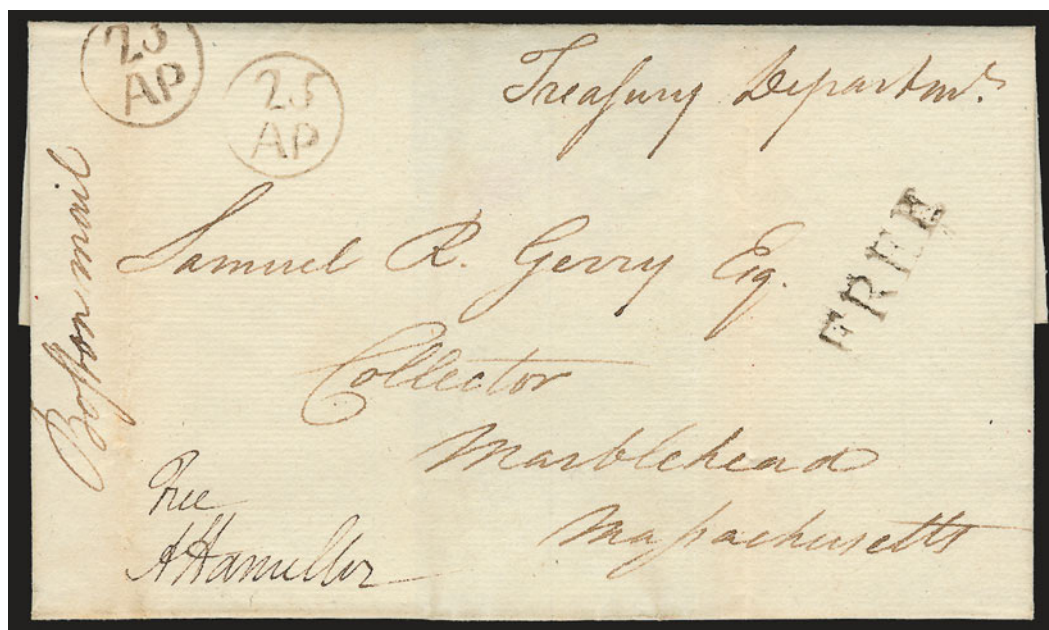 23
AP
25
AP
Treaſury Departmt.
Boſton mail
Samuel R. Gerry Esq.
FREE
Collector
Marblehead
Maſsachusetts
Free
A Hamilton